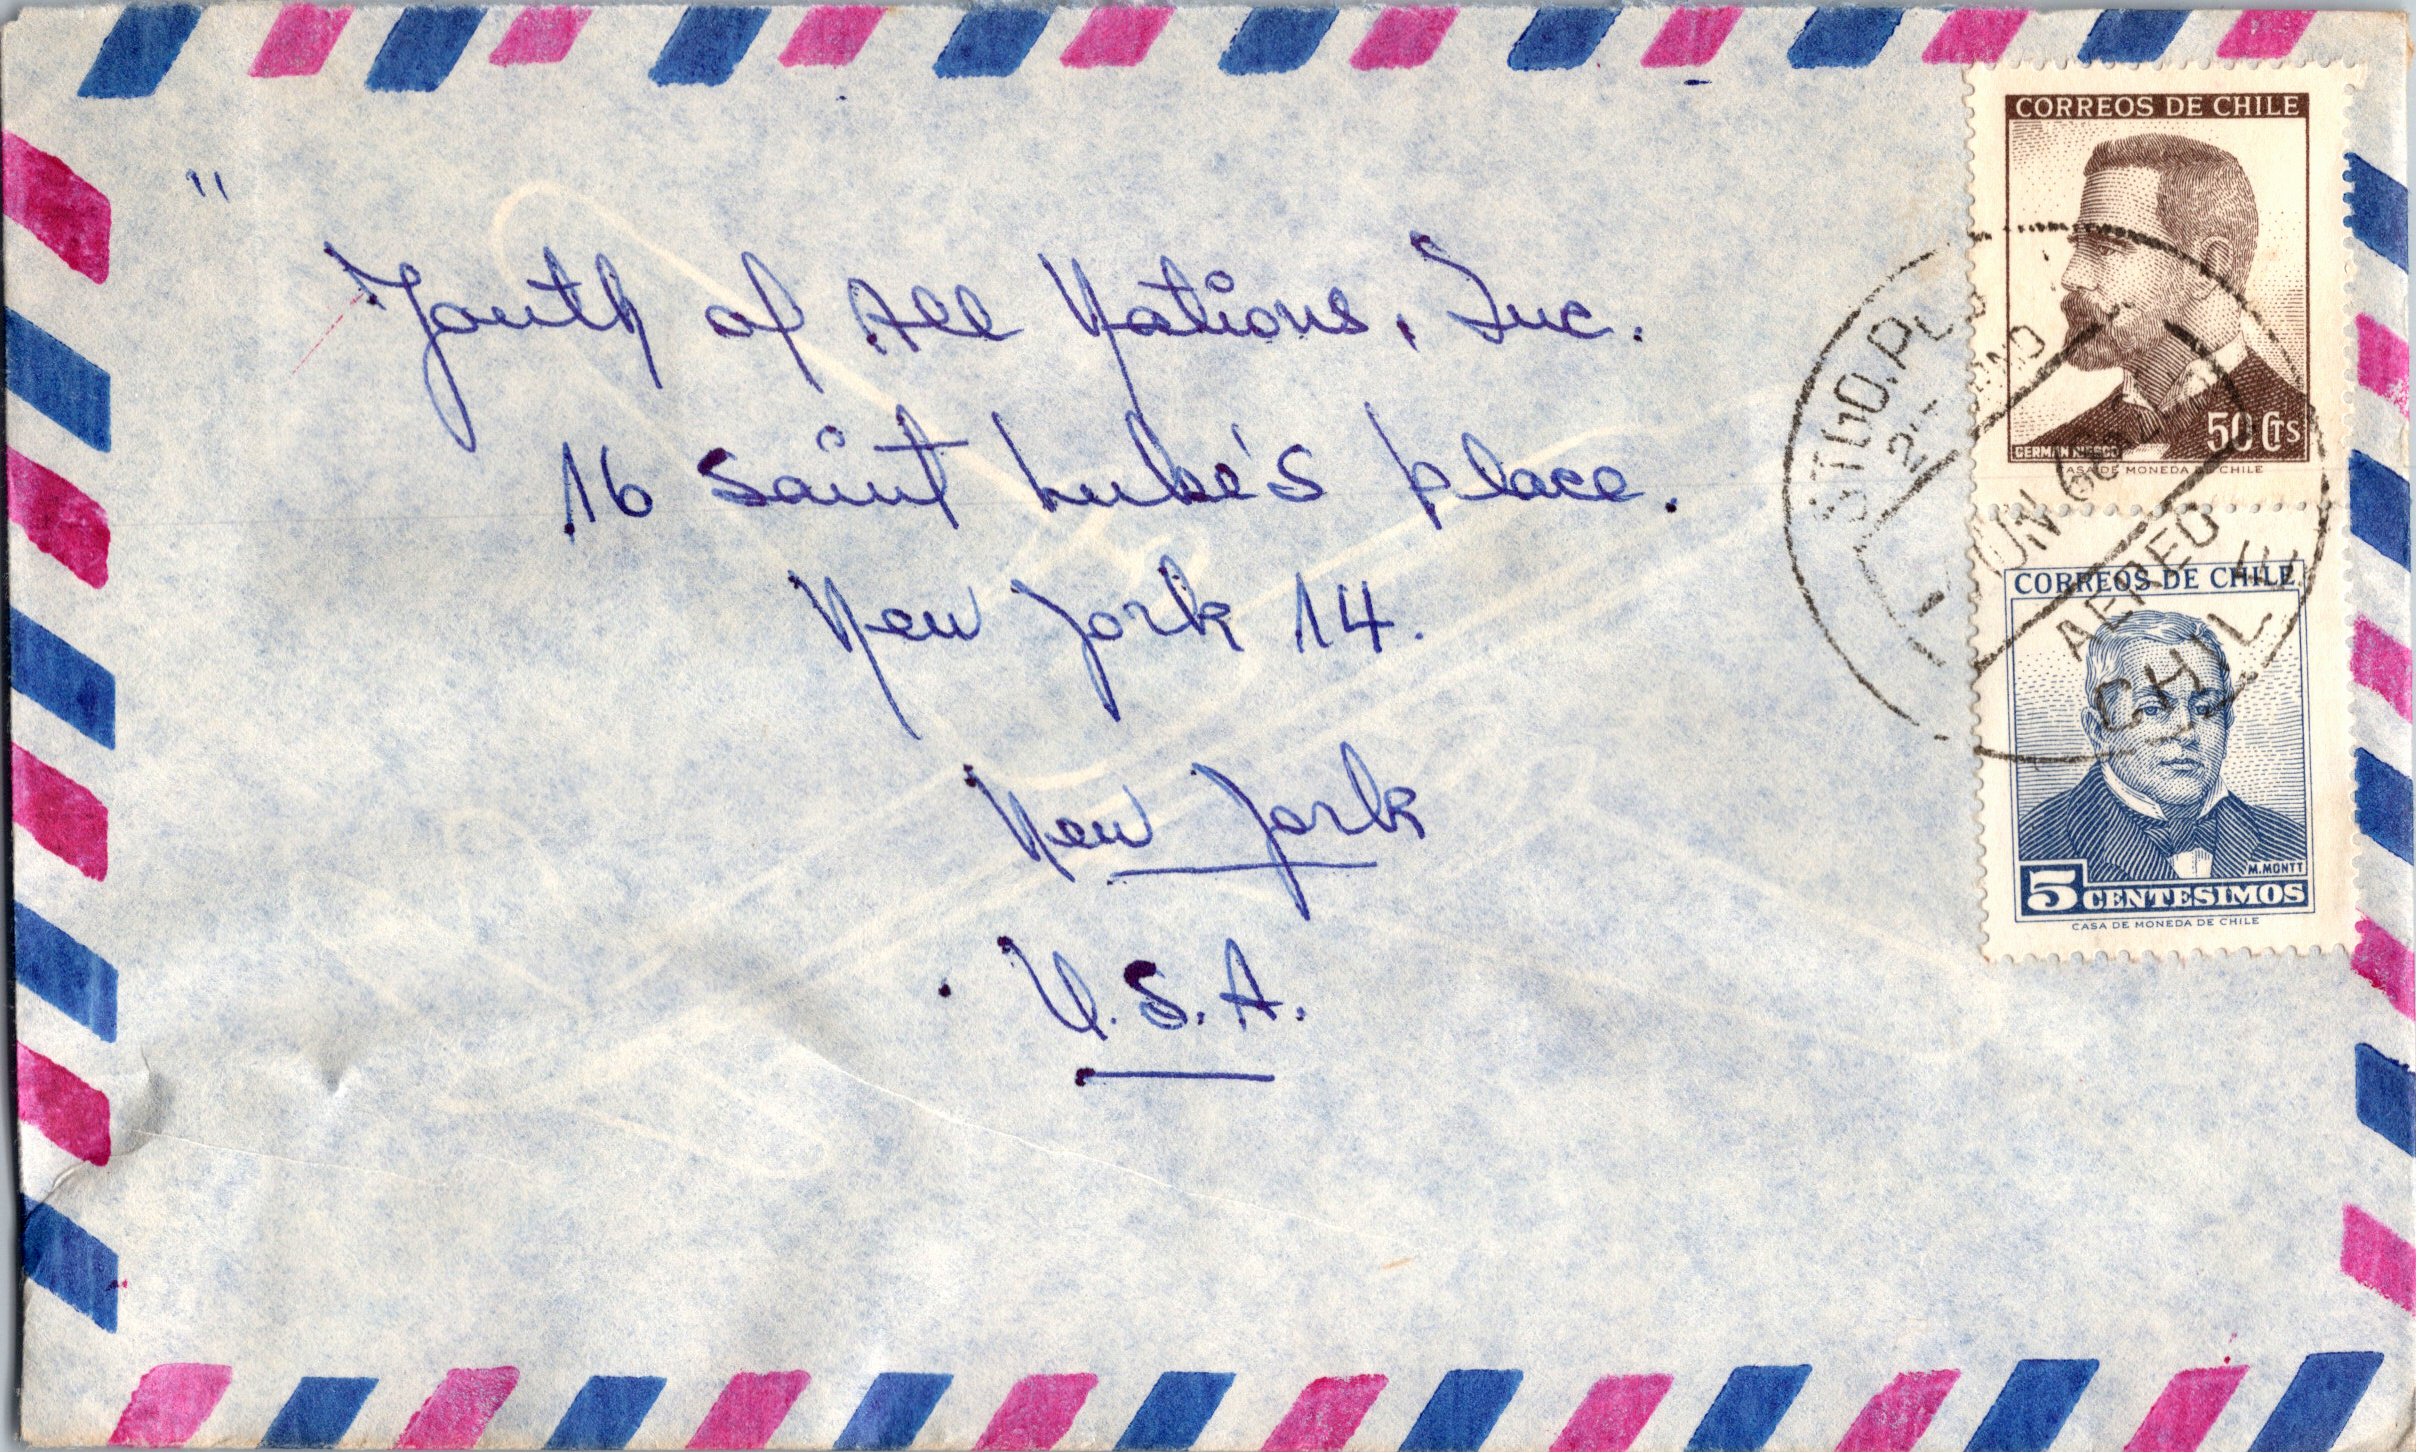 Youth of All Nations, Inc.
16 Saint Luke's place.
New York 14.
New York
U.S.A.
CORREOS DE CHILE
50 Cts
CASA DE MONEDA DE CHILE
CORREOS DE CHILE
M. MONTT
5 CENTESIMOS
CASA DE MONEDA DE CHILE
STGO.
AEREO
CHILE